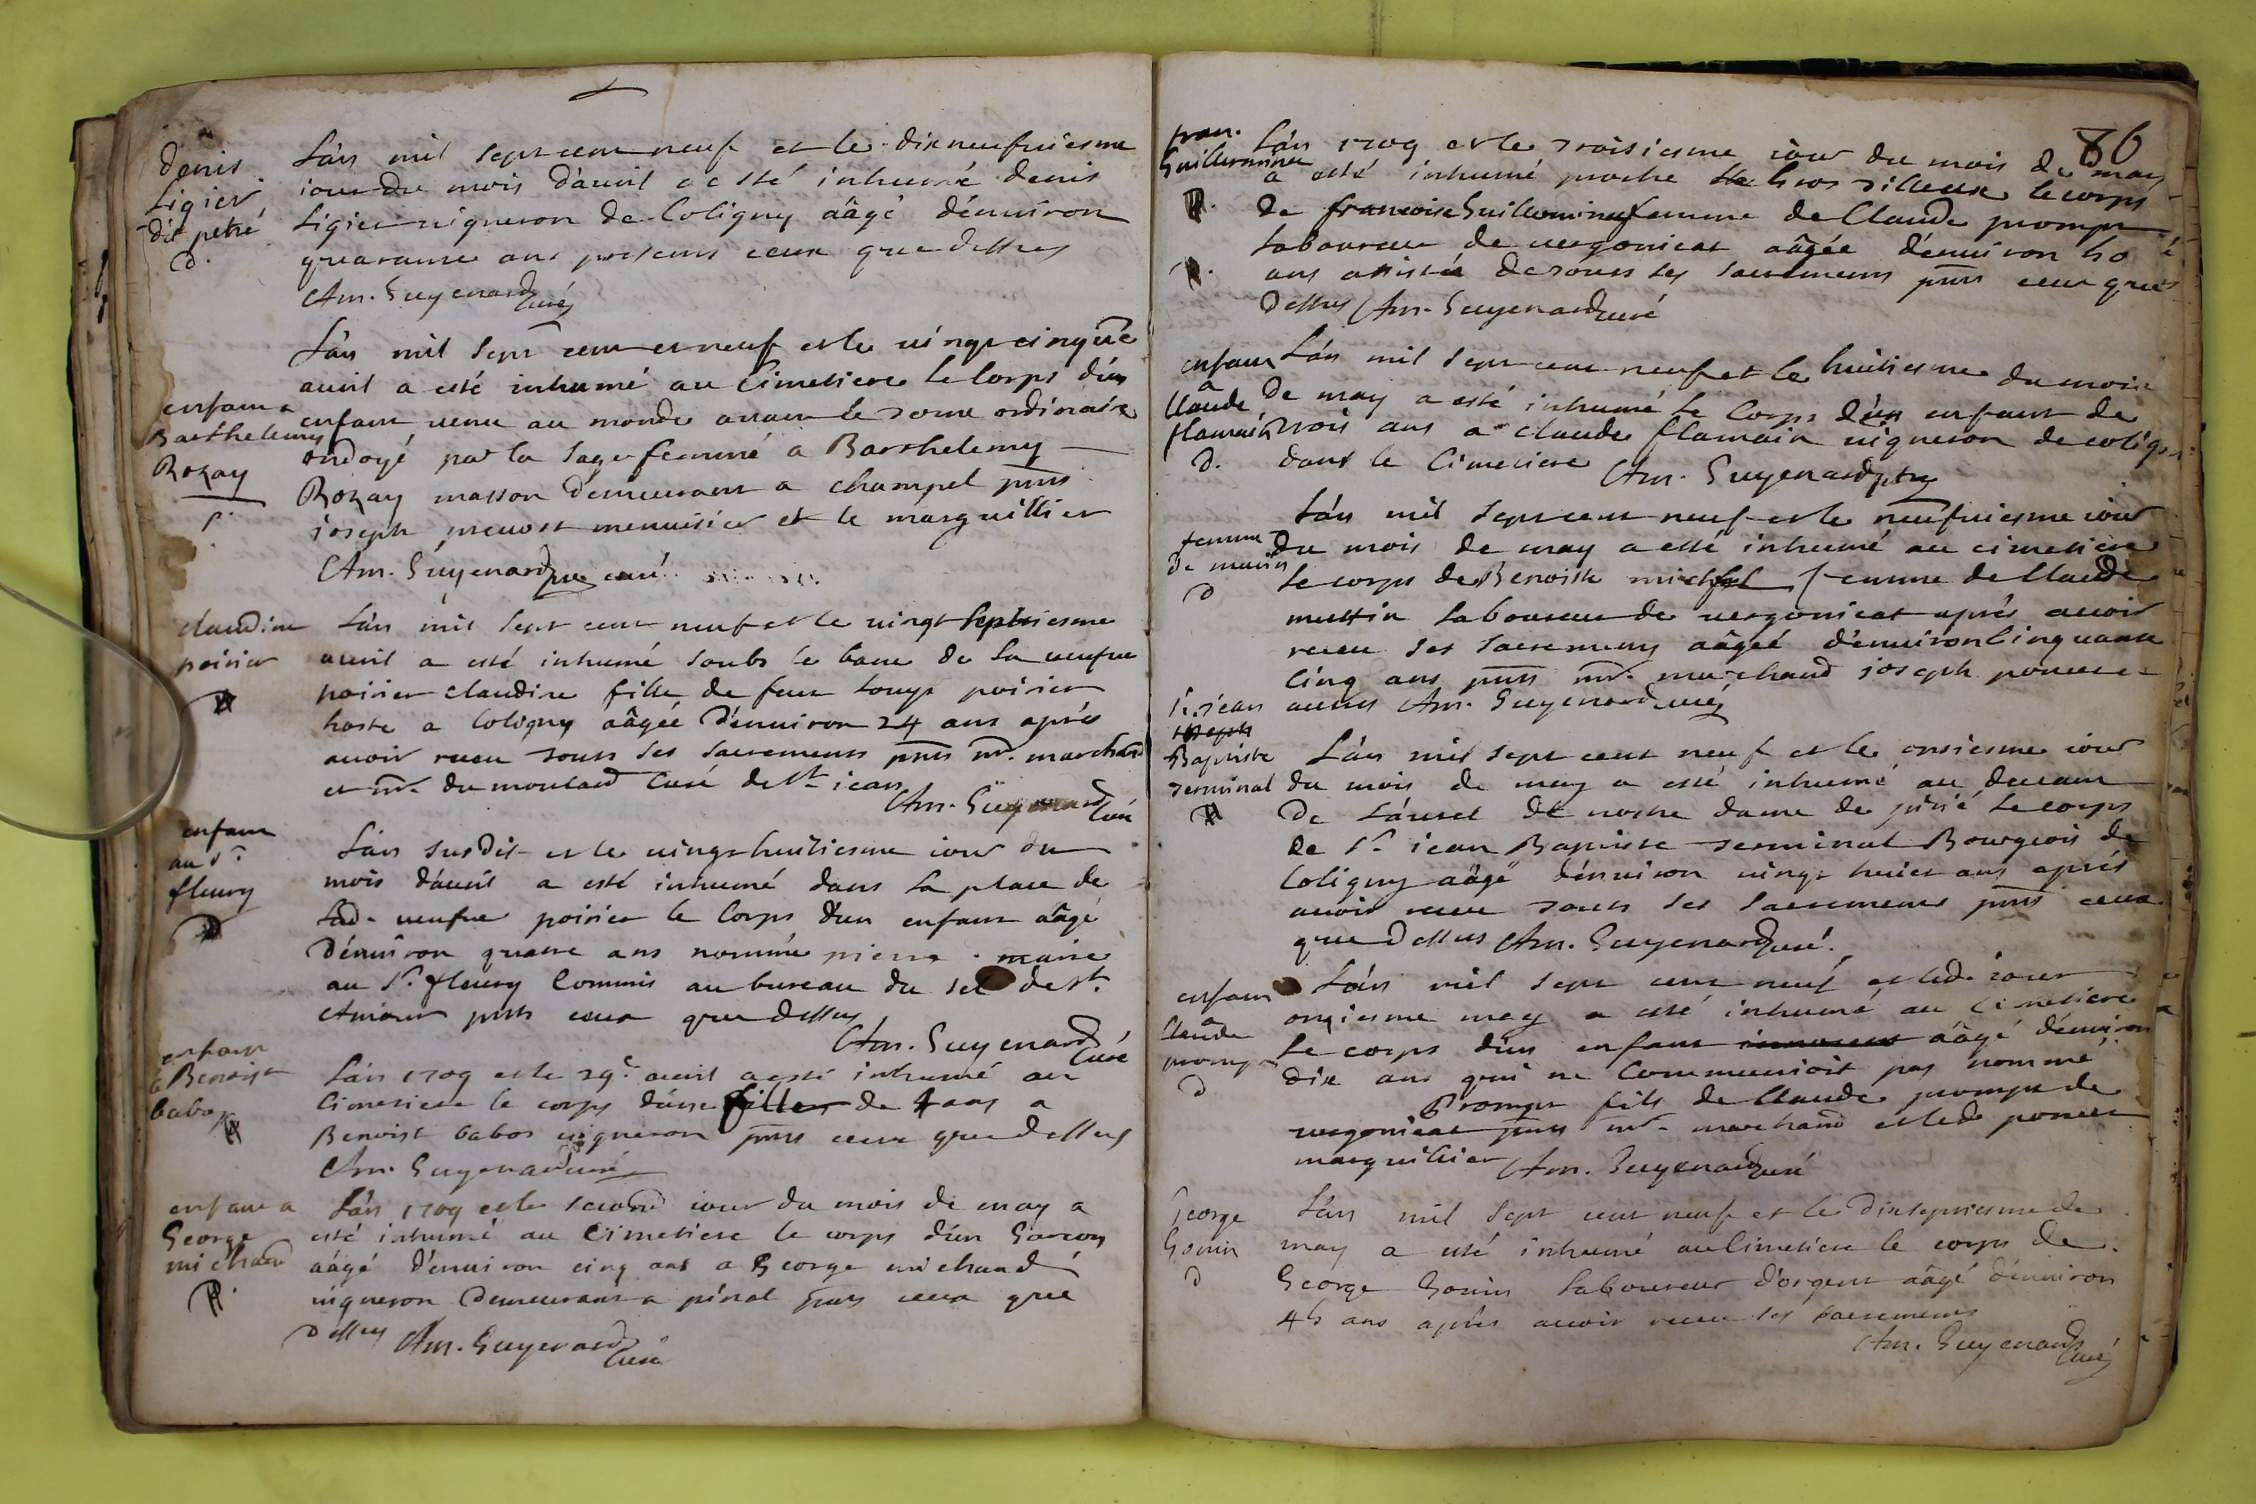 denis
Ligier
dit petré
d.
L'an mil sept cent neuf et le dixneufuiesme
iour du mois d'auril a esté inhumé denis
Ligier uigneron de Coligny aâgé d'enuiron
quarante ans presents ceux que dessus
Am. Guyenard curé
enfant a
Barthelemy
Rozay
L'an mil sept cent et neuf et le uingt cinque
auril a esté inhumé au Cimetiere le Corps d'un
enfant uenu au monde auant le terme ordinaire
ondoyé par la sage femme a Barthelemy
Rozay masson demeurant a champel pnts
ioseph preuost menuisier et le marguillier
Am. Guyenard pre curé
claudine
poirier
L'an mil sept cent neuf et le uingt septiesme
auril a esté inhumé soubs le banc de la ueufue
poirier claudine fille de feu Louys poirier
hoste a Coligny aâgée d'enuiron 24 ans aprés
auoir receu tous les sacrements pnts mr. marchand
et mr. du moulard Curé de st. iean
Am. Guyenard Curé
enfant
au sr.
fleury
L'an susdit et le uingt huitiesme iour du
mois d'auril a esté inhumé dans la place de
lad. ueufue poirier le Corps d'un enfant aâgé
d'enuiron quatre ans nommé pierre marie
au sr. fleury Commis au bureau du sel de st.
Amour pnts ceux que dessus
Am. Guyenard Curé
enfant
a Benoist
babos
L'an 1709 et le 29e. auril a esté inhumé au
Cimetiere le corps d'une fille de 4 ans a
Benoist babos uigneron pnts ceux que dessus
Am. Guyenard curé
enfant a
George
michaud
L'an 1709 et le second iour du mois de may a
esté inhumé au Cimetiere le corps d'un Garcon
aâgé d'enuiron cinq ans a George michaud
uigneron demeurant a pinal pnts ceux que
dessus Am. Guyenard Curé
86
fran.
Guillermine
L'an 1709 et le troisiesme iour du mois de may
a esté inhumé proche le Gros tilleux le corps
de francoise Guillermine femme de Claude prompt
laboureur de uergonicat aâgée d'enuiron 50
ans assistée de tous les sacrements pnts ceux que
dessus Am. Guyenard curé
enfant
a
Claude
flamain
d.
L'an mil sept cent neuf et le huitiesme du mois
de may a esté inhumé le Corps d'un enfant de
trois ans a claude flamain uigneron de coligny
dans le Cimetiere Am. Guyenard ptre
femme
de mutin
d
L'an mil sept cent neuf et le neufuiesme iour
du mois de may a esté inhumé au cimetiere
le corps de Benoiste michel femme de Claude
muttin laboureur de uergonicat aprés auoir
receu ses sacremens aâgée d'enuiron Cinquante
Cinq ans pnts mr. marchand ioseph
Am. Guyenard curé
sr. iean
Baptiste
terminal
L'an mil sept cent neuf et le onsiesme iour
du mois de may a esté inhumé au deuant
de L'autel de nostre dame de pitié le corps
de sr. iean Baptiste terminal Bourgeois de
Coligny aâgé d'enuiron uingt huict ans aprés
auoir receu tous les sacremens pnts ceux
que dessus Am. Guyenard curé.
enfant
a
Claude
prompt
d
L'an mil sept cent neuf et led. iour
onziesme may a esté inhumé au Cimetiere
le corps d'un enfant aâgé d'enuiron
dix ans qui ne Communioit pas nommé
Prompt fils de Claude prompt de
uergonicat pnts mr. marchand et led.
marguillier Am. Guyenard curé
George
Gonin
d
L'an mil sept cent neuf et le dixseptiesme de
may a esté inhumé au Cimetiere le corps de
George Gonin laboureur d'orgent aâgé d'enuiron
45 ans aprés auoir receu les sacremens
Am. Guyenard Curé